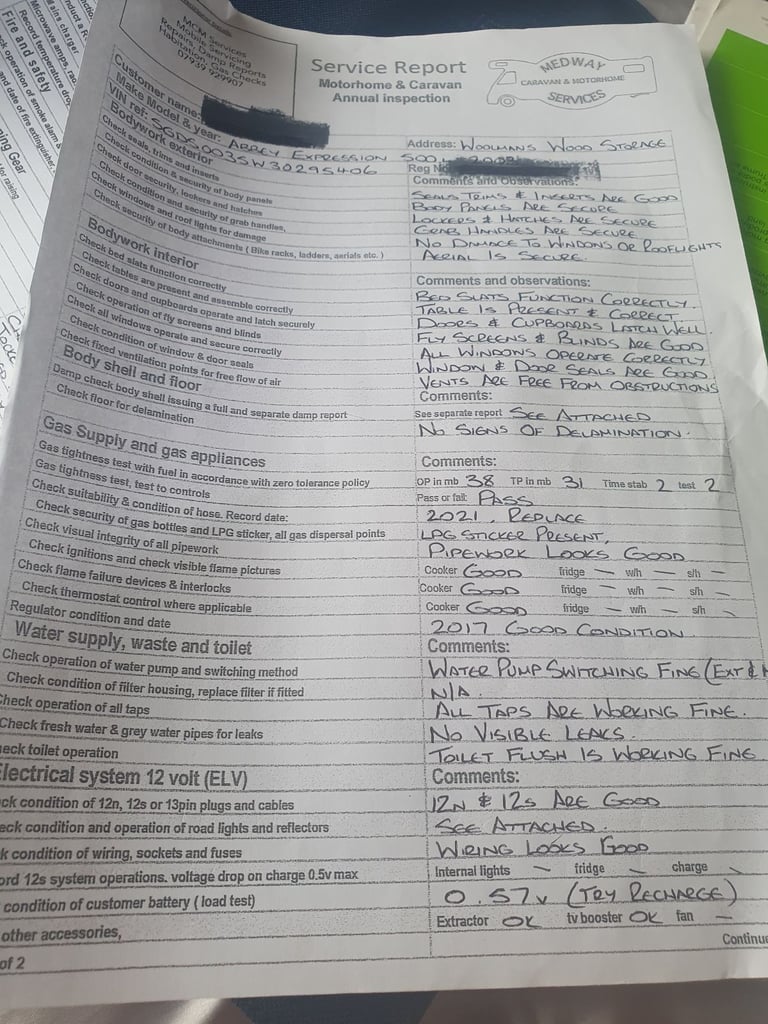 MCM Services
Mobile Servicing
Repairs, Damp Reports
Habitation, Gas Checks
07939 929907
Service Report
Motorhome & Caravan
Annual inspection
MEDWAY
CARAVAN & MOTORHOME
SERVICES
Customer name:
Address: WOOLMANS WOOD STORAGE
Make Model & year: ABBEY EXPRESSION
Reg No
VIN ref:
Bodywork exterior
Comments and Observations:
Check seals, trims and inserts SEALS TRIMS & INSERTS ARE GOOD
Check condition & security of body panels BODY PANELS ARE SECURE
Check door security, lockers and hatches LOCKERS & HATCHES ARE SECURE
Check condition and security of grab handles, GRAB HANDLES ARE SECURE
Check windows and roof lights for damage NO DAMAGE TO WINDOWS OR ROOFLIGHTS
Check security of body attachments ( Bike racks, ladders, aerials etc. ) AERIAL IS SECURE
Bodywork interior Comments and observations:
Check bed slats function correctly BED SLATS FUNCTION CORRECTLY.
Check tables are present and assemble correctly TABLE IS PRESENT & CORRECT
Check doors and cupboards operate and latch securely DOORS & CUPBOARDS LATCH WELL.
Check operation of fly screens and blinds FLY SCREENS & BLINDS ARE GOOD
Check all windows operate and secure correctly ALL WINDOWS OPERATE CORRECTLY
Check condition of window & door seals WINDOW & DOOR SEALS ARE GOOD
Check fixed ventilation points for free flow of air VENTS ARE FREE FROM OBSTRUCTIONS
Body shell and floor Comments:
Damp check body shell issuing a full and separate damp report See separate report SEE ATTACHED
Check floor for delamination NO SIGNS OF DELAMINATION.
Gas Supply and gas appliances Comments:
Gas tightness test with fuel in accordance with zero tolerance policy OP in mb 38 TP in mb 31 Time stab 2 test 2
Gas tightness test, test to controls Pass or fail: PASS
Check suitability & condition of hose. Record date: 2021. REPLACE
Check security of gas bottles and LPG sticker, all gas dispersal points LPG STICKER PRESENT,
Check visual integrity of all pipework PIPEWORK LOOKS GOOD
Check ignitions and check visible flame pictures Cooker GOOD fridge — w/h — s/h —
Check flame failure devices & interlocks Cooker GOOD fridge — w/h — s/h —
Check thermostat control where applicable Cooker GOOD fridge — w/h — s/h —
Regulator condition and date 2017 GOOD CONDITION
Water supply, waste and toilet Comments:
Check operation of water pump and switching method WATER PUMP SWITCHING FINE (EXT &
Check condition of filter housing, replace filter if fitted N/A.
Check operation of all taps ALL TAPS ARE WORKING FINE.
Check fresh water & grey water pipes for leaks NO VISIBLE LEAKS.
eck toilet operation TOILET FLUSH IS WORKING FINE
Electrical system 12 volt (ELV) Comments:
ck condition of 12n, 12s or 13pin plugs and cables 12N & 12S ARE GOOD
eck condition and operation of road lights and reflectors SEE ATTACHED.
k condition of wiring, sockets and fuses WIRING LOOKS GOOD
ord 12s system operations. voltage drop on charge 0.5v max Internal lights — fridge — charge —
condition of customer battery ( load test) 0.57v (TRY RECHARGE)
other accessories, Extractor OK tv booster OK fan —
Continue
of 2